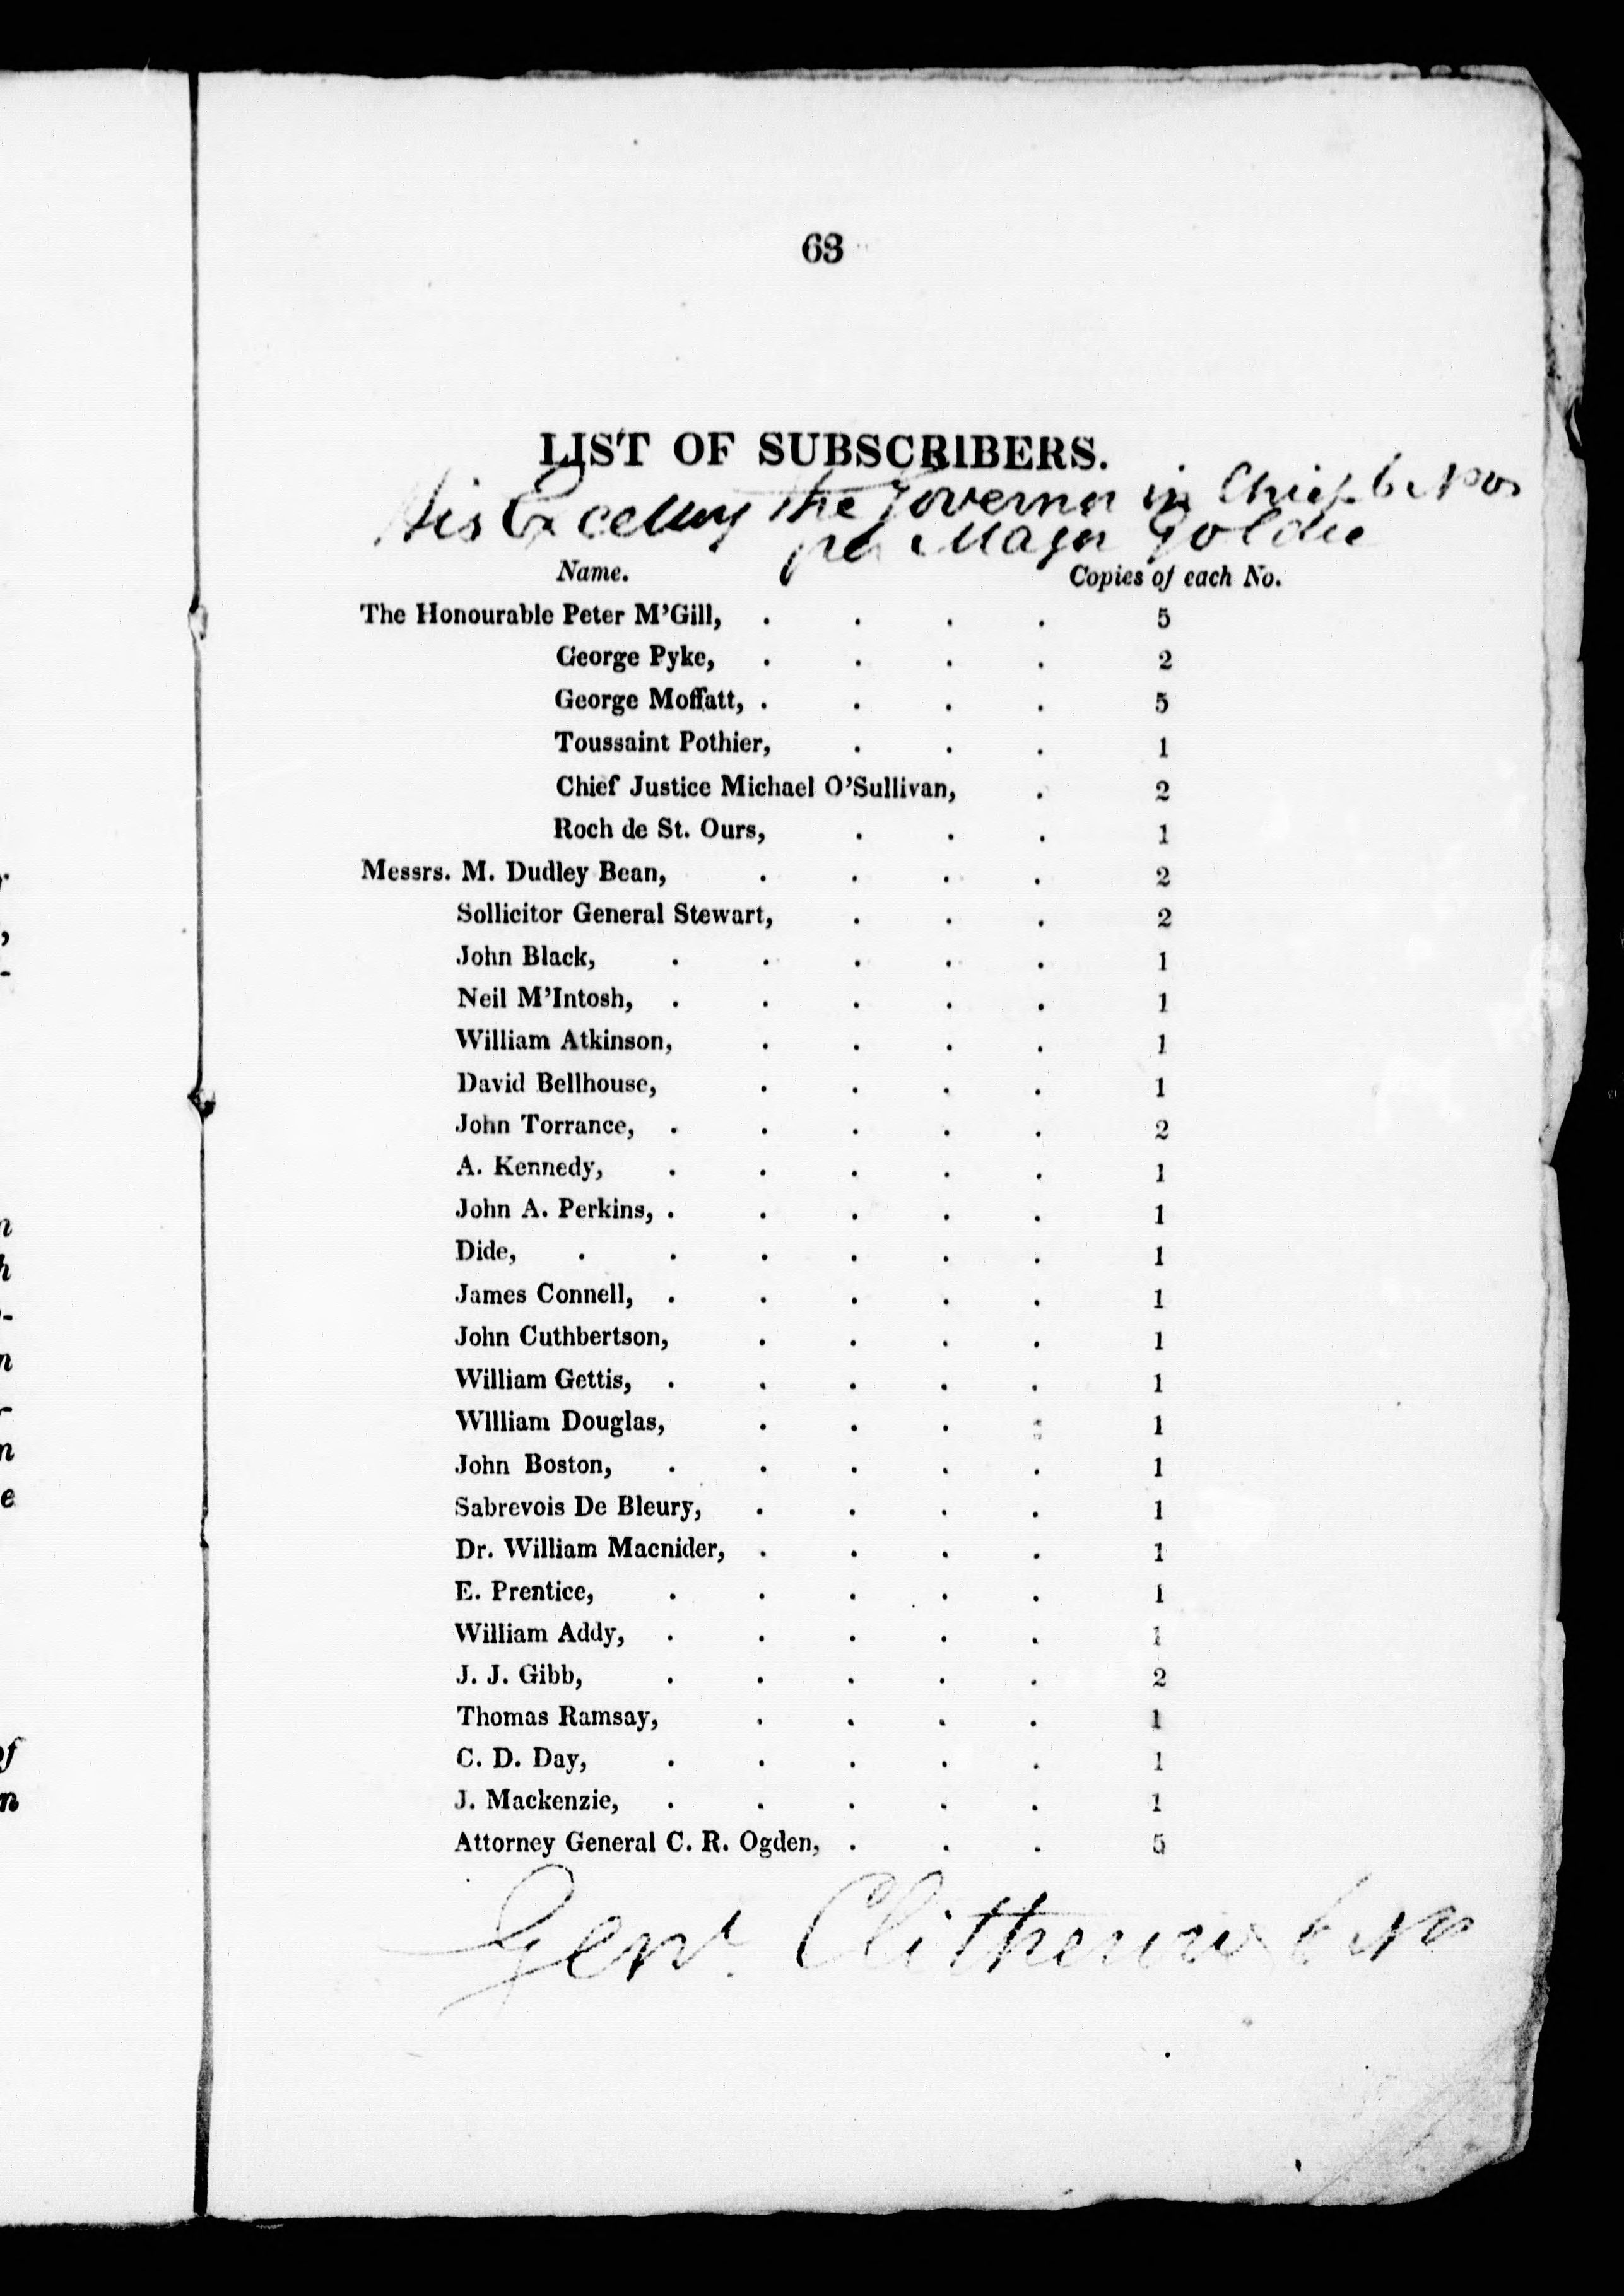 63
LIST OF SUBSCRIBERS.
His Excellency the Governor in Chief 6 Nos
per Major Goldie
Name. Copies of each No.
The Honourable Peter M'Gill, . . . . 5
George Pyke, . . . . 2
George Moffatt, . . . . 5
Toussaint Pothier, . . . 1
Chief Justice Michael O'Sullivan, . 2
Roch de St. Ours, . . . 1
Messrs. M. Dudley Bean, . . . . 2
Sollicitor General Stewart, . . . 2
John Black, . . . . . 1
Neil M'Intosh, . . . . . 1
William Atkinson, . . . . 1
David Bellhouse, . . . . 1
John Torrance, . . . . . 2
A. Kennedy, . . . . . 1
John A. Perkins, . . . . . 1
Dide, . . . . . . 1
James Connell, . . . . . 1
John Cuthbertson, . . . . 1
William Gettis, . . . . . 1
William Douglas, . . . . 1
John Boston, . . . . . 1
Sabrevois De Bleury, . . . . 1
Dr. William Macnider, . . . . 1
E. Prentice, . . . . . 1
William Addy, . . . . . 1
J. J. Gibb, . . . . . 2
Thomas Ramsay, . . . . 1
C. D. Day, . . . . . 1
J. Mackenzie, . . . . . 1
Attorney General C. R. Ogden, . . . 5
Genl. Clitherow 6 Nos